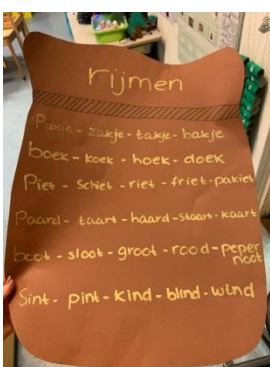 rijmen
Pakje - zakje - takje - bakje
boek - koek - hoek - doek
Piet - schiet - riet - friet - pakiet
Paard - taart - haard - staart - kaart
boot - sloot - groot - rood - peper
noot
Sint - pint - kind - blind - wind